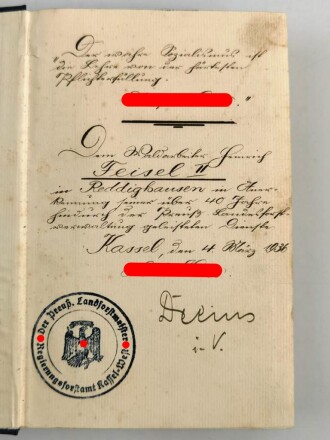 "Der wahre Sozialismus ist
die Lehre von der härtesten
Pflichterfüllung.
"
Dem Waldarbeiter Heinrich
Feisel II
in Reddighausen in Aner-
kennung seiner über 40 Jahre
hindurch der Preuß. Landesforst-
verwaltung geleisteten Dienste
Kassel, den 4 März 1936
i. V.
Der Preuß. Landforstmeister
Regierungsforstamt Kassel-West